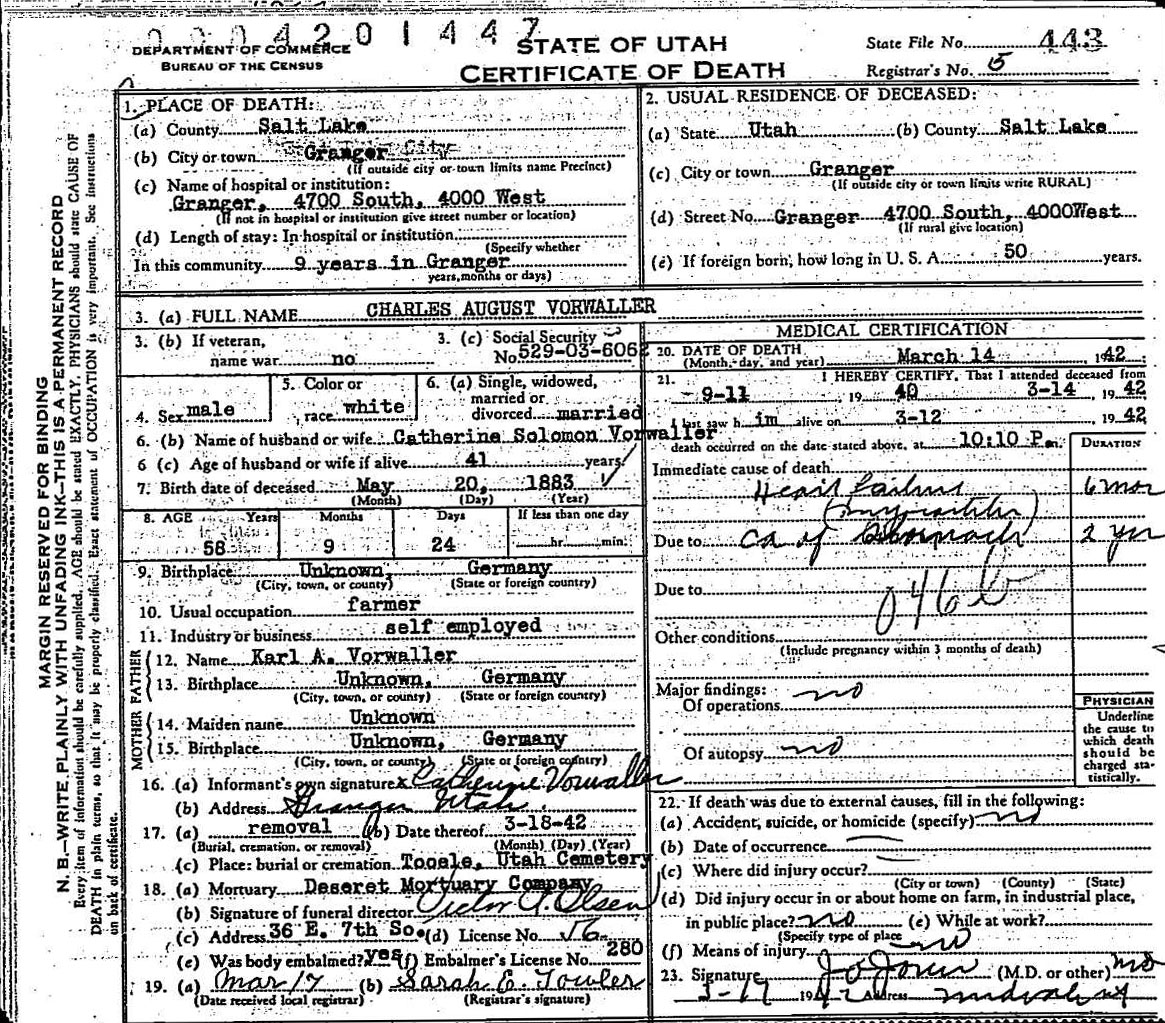 0004201447
DEPARTMENT OF COMMERCE
BUREAU OF THE CENSUS
STATE OF UTAH
CERTIFICATE OF DEATH
State File No. 443
Registrar's No. 5
MARGIN RESERVED FOR BINDING
N. B.—WRITE PLAINLY WITH UNFADING INK—THIS IS A PERMANENT RECORD
Every item of information should be carefully supplied. AGE should be stated EXACTLY. PHYSICIANS should state CAUSE OF
DEATH in plain terms, so that it may be properly classified. Exact statement of OCCUPATION is very important. See instructions
on back of certificate.
1. PLACE OF DEATH:
(a) County Salt Lake
(b) City or town Granger City
(If outside city or town limits name Precinct)
(c) Name of hospital or institution:
Granger, 4700 South, 4000 West
(If not in hospital or institution give street number or location)
(d) Length of stay: In hospital or institution
(Specify whether
In this community 9 years in Granger
years, months or days)
2. USUAL RESIDENCE OF DECEASED:
(a) State Utah (b) County Salt Lake
(c) City or town Granger
(If outside city or town limits write RURAL)
(d) Street No. Granger 4700 South, 4000West
(If rural give location)
(e) If foreign born, how long in U. S. A. 50 years.
3. (a) FULL NAME CHARLES AUGUST VORWALLER
3. (b) If veteran,
name war no
3. (c) Social Security
No. 529-03-6062
4. Sex male
5. Color or
race white
6. (a) Single, widowed,
married or
divorced married
6. (b) Name of husband or wife Catherine Solomon Vorwaller
6 (c) Age of husband or wife if alive 41 years
7. Birth date of deceased May 20, 1883
(Month) (Day) (Year)
8. AGE Years Months Days If less than one day
58 9 24 hr. min.
9. Birthplace Unknown, Germany
(City, town, or county) (State or foreign country)
10. Usual occupation farmer
11. Industry or business self employed
FATHER
12. Name Karl A. Vorwaller
13. Birthplace Unknown, Germany
(City, town, or county) (State or foreign country)
MOTHER
14. Maiden name Unknown
15. Birthplace Unknown, Germany
(City, town, or county) (State or foreign country)
16. (a) Informant's own signature x Catherine Vorwaller
(b) Address Granger Utah
17. (a) removal (b) Date thereof 3-18-42
(Burial, cremation, or removal) (Month) (Day) (Year)
(c) Place: burial or cremation Tooele, Utah Cemetery
18. (a) Mortuary Deseret Mortuary Company
(b) Signature of funeral director Victor P. Olsen
(c) Address 36 E. 7th So. (d) License No. 56
(e) Was body embalmed? yes (f) Embalmer's License No. 280
19. (a) Mar 17 (b) Sarah E. Towler
(Date received local registrar) (Registrar's signature)
MEDICAL CERTIFICATION
20. DATE OF DEATH
(Month, day, and year) March 14, 1942
21. I HEREBY CERTIFY, That I attended deceased from
9-11 19 40 3-14 19 42
I last saw h im alive on 3-12 19 42
death occurred on the date stated above, at 10:10 P. m.
DURATION
Immediate cause of death
Heart failure 6 mos
(myocarditis)
Due to Ca of Stomach 2 yrs
Due to
046b
Other conditions
(Include pregnancy within 3 months of death)
Major findings:
Of operations no
Of autopsy no
PHYSICIAN
Underline
the cause to
which death
should be
charged sta-
tistically.
22. If death was due to external causes, fill in the following:
(a) Accident, suicide, or homicide (specify) no
(b) Date of occurrence
(c) Where did injury occur?
(City or town) (County) (State)
(d) Did injury occur in or about home on farm, in industrial place,
in public place? no (e) While at work?
(Specify type of place
(f) Means of injury no
23. Signature J O Jones (M.D. or other) MD
3-17 1942 Address Midvale Ut